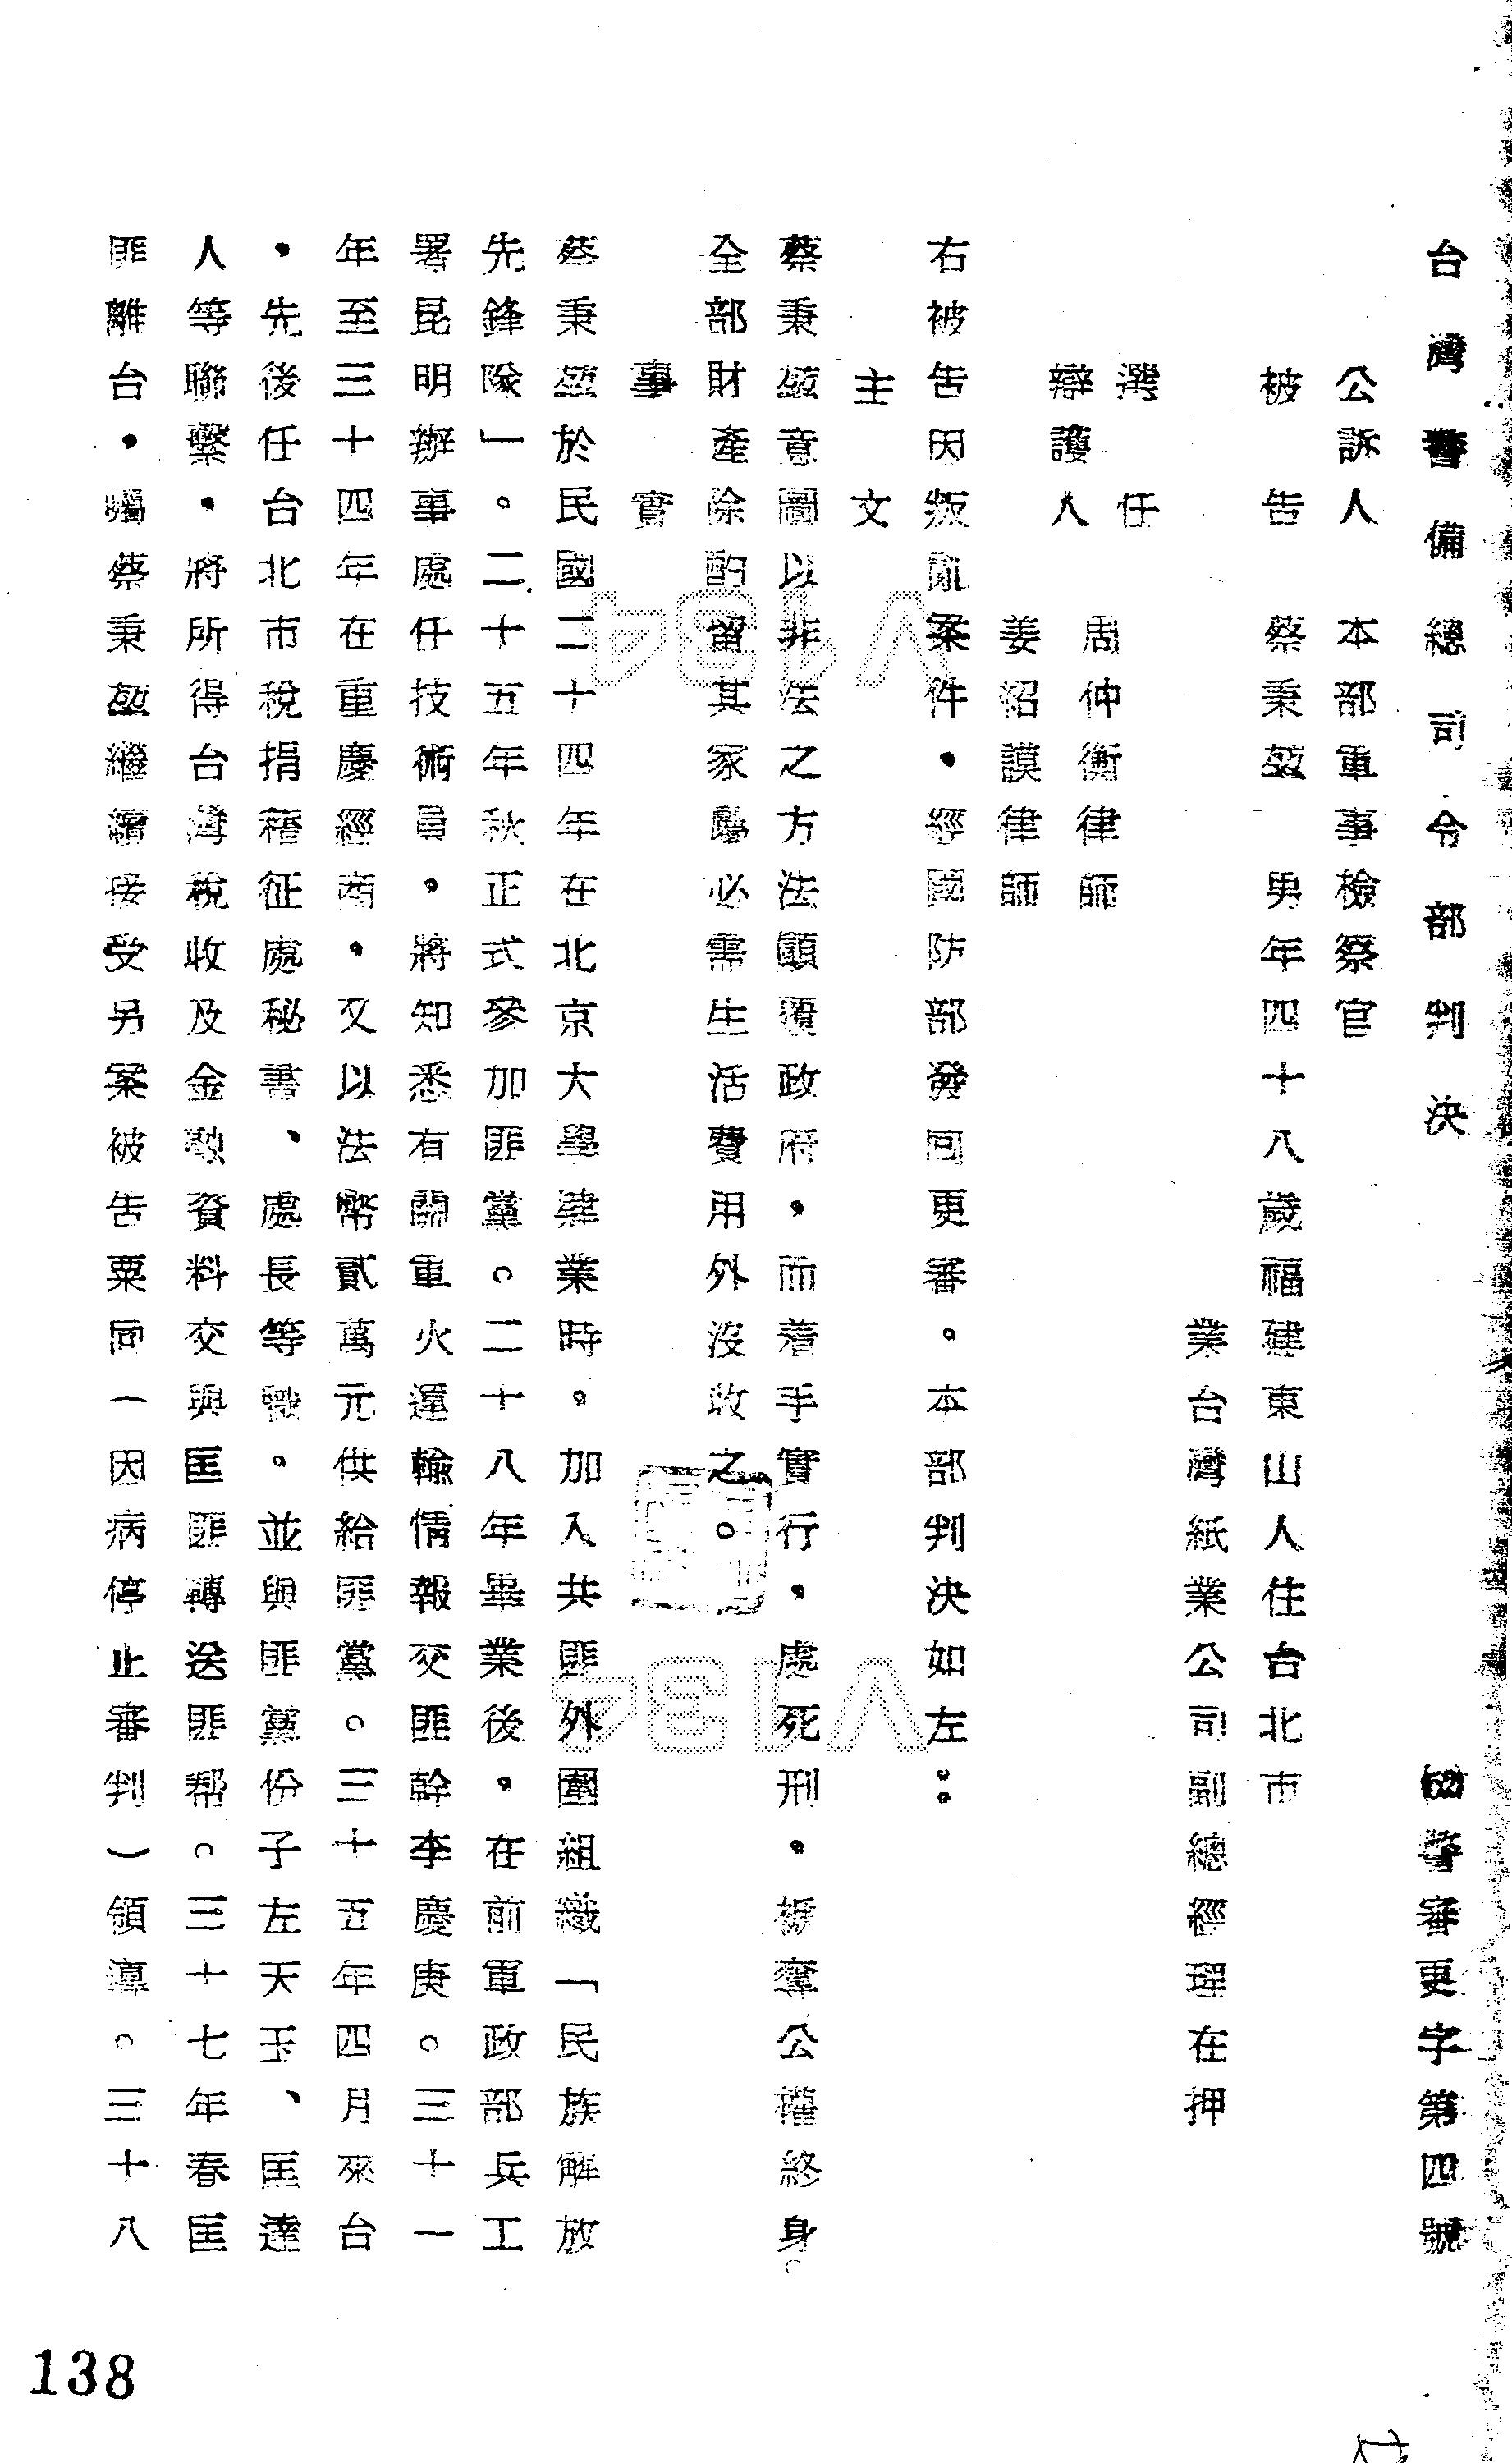 台灣警備總司令部判決
(52)警審更字第四號
公訴人 本部軍事檢察官
被告 蔡秉堃 男年四十八歲福建東山人住台北市
業台灣紙業公司副總經理在押
選任
辯護人
周仲衡律師
姜紹謨律師
右被告因叛亂案件,經國防部發回更審。本部判決如左:
主文
蔡秉堃意圖以非法之方法顛覆政府,而着手實行,處死刑,褫奪公權終身。
全部財產除酌留其家屬必需生活費用外沒收之。
事實
蔡秉堃於民國二十四年在北京大學肄業時。加入共匪外圍組織「民族解放
先鋒隊」。二十五年秋正式參加匪黨。二十八年畢業後,在前軍政部兵工
署昆明辦事處任技術員,將知悉有關軍火運輸情報交匪幹李慶庚。三十一
年至三十四年在重慶經商,又以法幣貳萬元供給匪黨。三十五年四月來台
,先後任台北市稅捐稽征處秘書、處長等職。並與匪黨份子左天玉、匡達
人等聯繫,將所得台灣稅收及金融資料交與匡匪轉送匪幫。三十七年春匡
匪離台,囑蔡秉堃繼續接受另案被告粟同(因病停止審判)領導。三十八
138
V134
V134